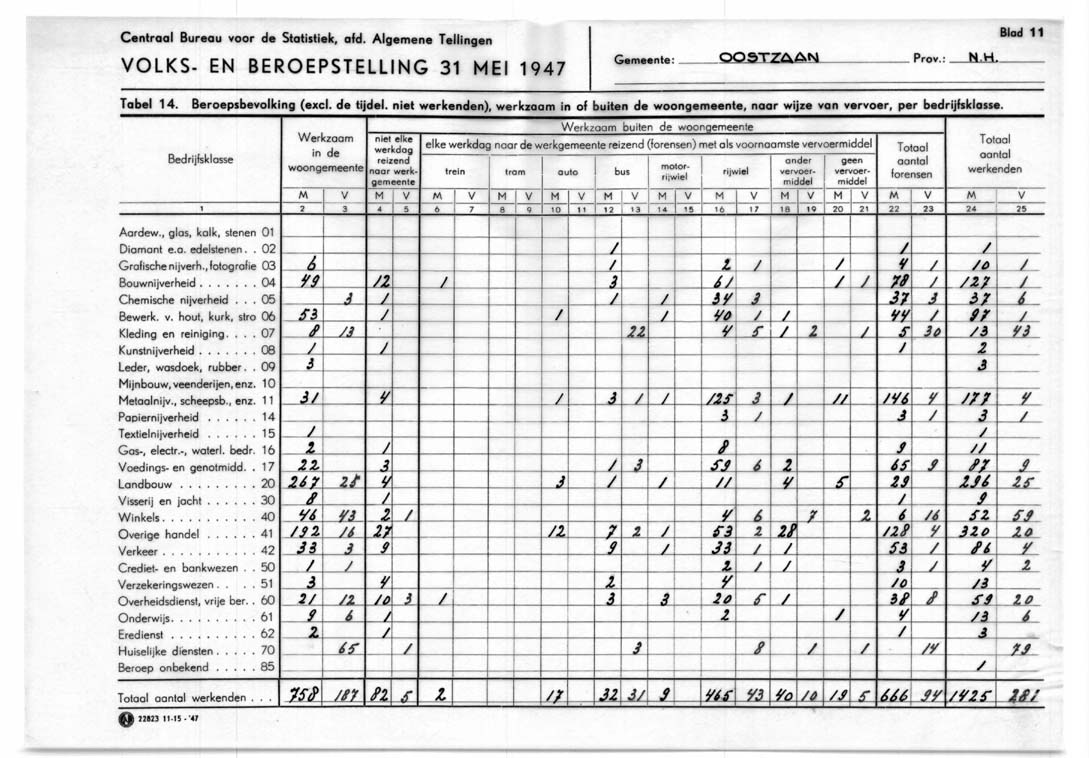 Centraal Bureau voor de Statistiek, afd. Algemene Tellingen
Blad 11
VOLKS- EN BEROEPSTELLING 31 MEI 1947
Gemeente: OOSTZAAN Prov.: N.H.
Tabel 14. Beroepsbevolking (excl. de tijdel. niet werkenden), werkzaam in of buiten de woongemeente, naar wijze van vervoer, per bedrijfsklasse.
Bedrijfsklasse
Werkzaam in de woongemeente
Werkzaam buiten de woongemeente
niet elke werkdag reizend naar werk-gemeente
elke werkdag naar de werkgemeente reizend (forensen) met als voornaamste vervoermiddel
trein tram auto bus motor-rijwiel rijwiel ander vervoer-middel geen vervoer-middel
Totaal aantal forensen
Totaal aantal werkenden
M V M V M V M V M V M V M V M V M V M V M V M V
1 2 3 4 5 6 7 8 9 10 11 12 13 14 15 16 17 18 19 20 21 22 23 24 25
Aardew., glas, kalk, stenen 01
Diamant e.a. edelstenen . . 02 1 1 1
Grafische nijverh., fotografie 03 6 1 2 1 1 4 1 10 1
Bouwnijverheid . . . . . . . 04 49 12 1 3 61 1 1 78 1 127 1
Chemische nijverheid . . . 05 3 1 1 1 34 3 37 3 37 6
Bewerk. v. hout, kurk, stro 06 53 1 1 1 40 1 1 44 1 97 1
Kleding en reiniging. . . . 07 8 13 22 4 5 1 2 1 5 30 13 43
Kunstnijverheid . . . . . . . 08 1 1 1 2
Leder, wasdoek, rubber. . 09 3 3
Mijnbouw, veenderijen, enz. 10
Metaalnijv., scheepsb., enz. 11 31 4 1 3 1 1 125 3 1 11 146 4 177 4
Papiernijverheid . . . . . . 14 3 1 3 1 3 1
Textielnijverheid . . . . . . 15 1 1
Gas-, electr.-, waterl. bedr. 16 2 1 8 9 11
Voedings- en genotmidd. . 17 22 3 1 3 59 6 2 65 9 87 9
Landbouw . . . . . . . . . 20 267 25 4 3 1 1 11 4 5 29 296 25
Visserij en jacht . . . . . . 30 8 1 1 9
Winkels . . . . . . . . . . . 40 46 43 2 1 4 6 7 2 6 16 52 59
Overige handel . . . . . . . 41 192 16 27 12 7 2 1 53 2 28 128 4 320 20
Verkeer . . . . . . . . . . . 42 33 3 9 9 1 33 1 1 53 1 86 4
Crediet- en bankwezen . . 50 1 1 2 1 1 3 1 4 2
Verzekeringswezen . . . . 51 3 4 2 4 10 13
Overheidsdienst, vrije ber. . 60 21 12 10 3 1 3 3 20 5 1 38 8 59 20
Onderwijs. . . . . . . . . . 61 9 6 1 2 1 4 13 6
Eredienst . . . . . . . . . . 62 2 1 1 3
Huiselijke diensten . . . . . 70 65 1 3 8 1 1 14 79
Beroep onbekend . . . . . 85 1
Totaal aantal werkenden . . . 758 187 82 5 2 17 32 31 9 465 43 40 10 19 5 666 94 1425 282
22823 11-15 - '47